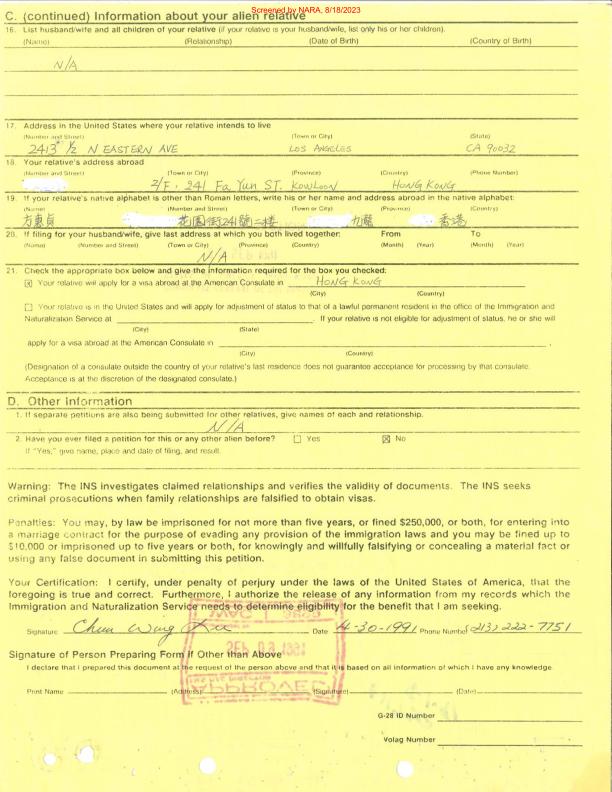 Screened by NARA, 8/18/2023
C. (continued) Information about your alien relative
16. List husband/wife and all children of your relative (if your relative is your husband/wife, list only his or her children).
(Name) (Relationship) (Date of Birth) (Country of Birth)
N/A
17. Address in the United States where your relative intends to live
(Number and Street) (Town or City) (State)
2413 1/2 N EASTERN AVE LOS ANGELES CA 90032
18. Your relative's address abroad
(Number and Street) (Town or City) (Province) (Country) (Phone Number)
2/F. 241 Fa Yun ST. KOWLOON HONG KONG
19. If your relative's native alphabet is other than Roman letters, write his or her name and address abroad in the native alphabet:
(Name) (Number and Street) (Town or City) (Province) (Country)
方惠貞 花園街241號二樓 九龍 香港
20. If filing for your husband/wife, give last address at which you both lived together: From To
(Name) (Number and Street) (Town or City) (Province) (Country) (Month) (Year) (Month) (Year)
N/A
21. Check the appropriate box below and give the information required for the box you checked:
☒ Your relative will apply for a visa abroad at the American Consulate in HONG KONG
(City) (Country)
☐ Your relative is in the United States and will apply for adjustment of status to that of a lawful permanent resident in the office of the Immigration and
Naturalization Service at . If your relative is not eligible for adjustment of status, he or she will
(City) (State)
apply for a visa abroad at the American Consulate in .
(City) (Country)
(Designation of a consulate outside the country of your relative's last residence does not guarantee acceptance for processing by that consulate.
Acceptance is at the discretion of the designated consulate.)
D. Other Information
1. If separate petitions are also being submitted for other relatives, give names of each and relationship.
N/A
2. Have you ever filed a petition for this or any other alien before? ☐ Yes ☒ No
If "Yes," give name, place and date of filing, and result.
Warning: The INS investigates claimed relationships and verifies the validity of documents. The INS seeks
criminal prosecutions when family relationships are falsified to obtain visas.
Penalties: You may, by law be imprisoned for not more than five years, or fined $250,000, or both, for entering into
a marriage contract for the purpose of evading any provision of the immigration laws and you may be fined up to
$10,000 or imprisoned up to five years or both, for knowingly and willfully falsifying or concealing a material fact or
using any false document in submitting this petition.
Your Certification: I certify, under penalty of perjury under the laws of the United States of America, that the
foregoing is true and correct. Furthermore, I authorize the release of any information from my records which the
Immigration and Naturalization Service needs to determine eligibility for the benefit that I am seeking.
Signature Chun Wing Date 4-30-1991 Phone Number (213) 222-7751
Signature of Person Preparing Form If Other than Above
I declare that I prepared this document at the request of the person above and that it is based on all information of which I have any knowledge.
Print Name (Address) (Signature) (Date)
APPROVED
G-28 ID Number
Volag Number